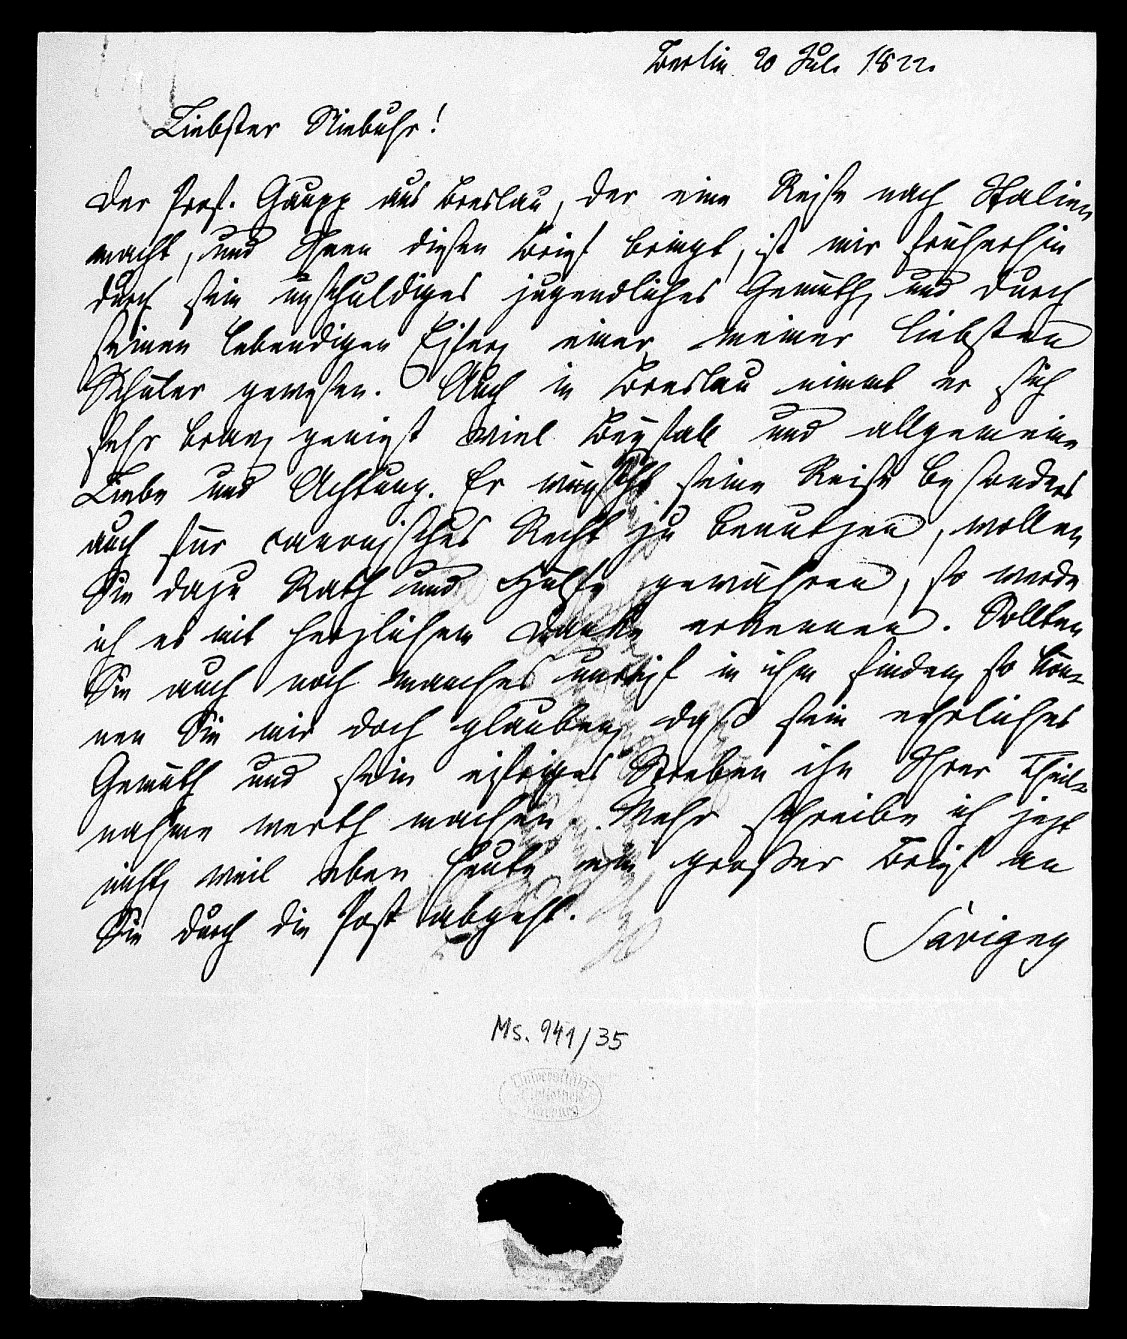 Berlin 20 Jul. 1822.
Liebster Niebuhr!
Der Prof. Gaupp aus Breslau, der eine Reise nach Italien
macht, und Ihnen diesen Brief bringt, ist mir früherhin
durch sein unschuldiges jugendliches Gemüth und durch
seinen lebendigen Eifer einer meiner liebsten
Schüler gewesen. Auch in Breslau nimmt er sich
sehr brav, genießt viel Beyfall und allgemeine
Liebe und Achtung. Er wünscht seine Reise besonders
auch für canonisches Recht zu benutzen, wollen
Sie dazu Rath und Hülfe gewähren, so werde
ich es mit herzlichem Danke erkennen. Sollten
Sie auch noch manches unreif in ihm finden, so kön-
nen Sie mir doch glauben, daß sein ehrliches
Gemüth und sein eifriges Streben ihn Ihrer Theil-
nahme werth machen. Mehr schreibe ich jezt
nicht, weil eben heute ein großer Brief an
Sie durch die Post abgeht.
Savigny
Ms. 941/35
Universitäts-
Bibliothek
Marburg